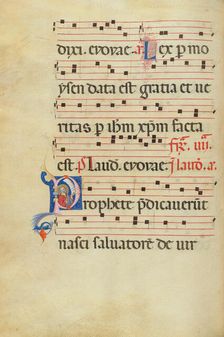 dixi. evovae. a. Lex p mo
ysen data est gratia et ve
ritas p ihm xpm facta
fr̄. iiii.
est. Ps. Laud. evovae. In laud. a.
Prophete p̄dicaverūt
nasci salvatorē de vir